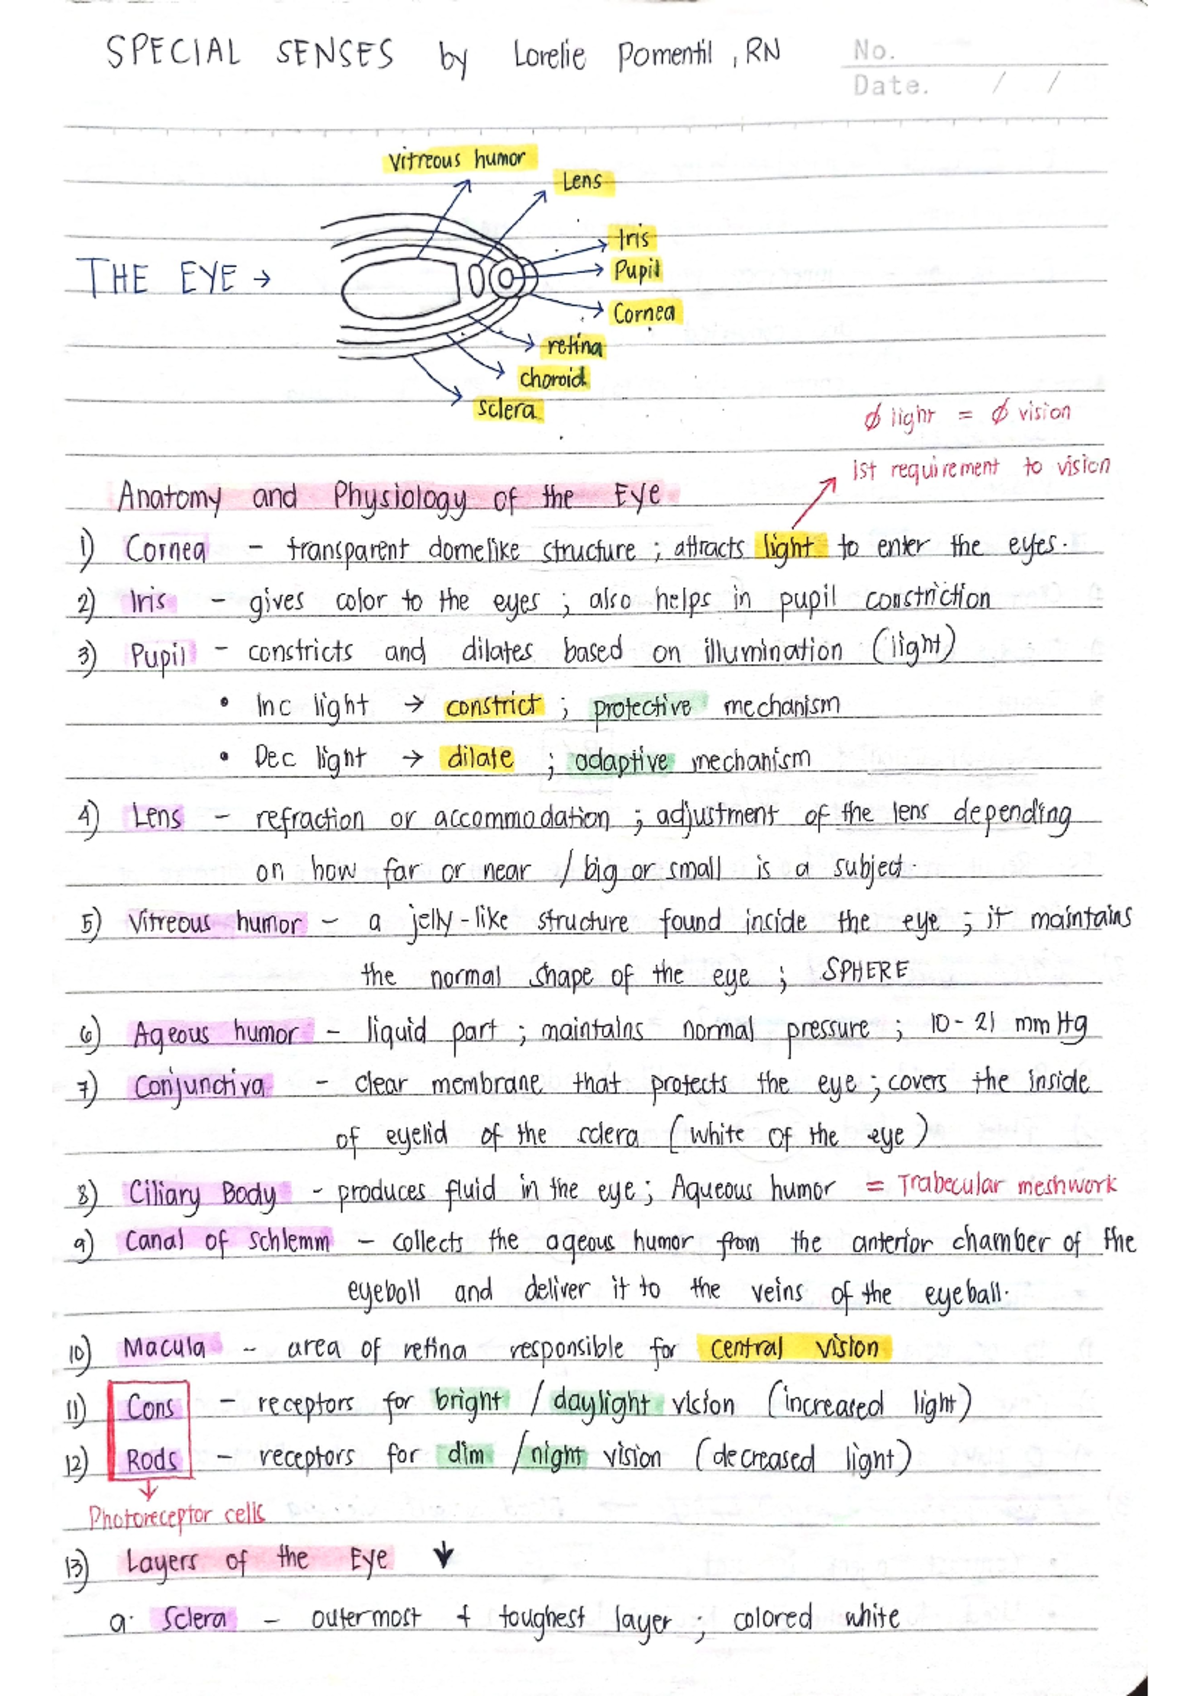 SPECIAL SENSES by Lorelie Pomentil, RN
No.
Date. / /
Vitreous humor
Lens
Iris
THE EYE →
Pupil
Cornea
retina
choroid
sclera
∅ light = ∅ vision
1st requirement to vision
Anatomy and Physiology of the Eye
1) Cornea - transparent domelike structure ; attracts light to enter the eyes.
2) Iris - gives color to the eyes ; also helps in pupil constriction
3) Pupil - constricts and dilates based on illumination (light)
• Inc light → constrict ; protective mechanism
• Dec light → dilate ; adaptive mechanism
4) Lens - refraction or accommodation ; adjustment of the lens depending
on how far or near / big or small is a subject.
5) Vitreous humor - a jelly-like structure found inside the eye ; it maintains
the normal shape of the eye ; SPHERE
6) Aqeous humor - liquid part ; maintains normal pressure ; 10-21 mmHg
7) Conjunctiva - clear membrane that protects the eye ; covers the inside
of eyelid of the sclera (white of the eye)
8) Ciliary Body - produces fluid in the eye ; Aqueous humor = Trabecular meshwork
9) Canal of Schlemm - collects the aqeous humor from the anterior chamber of the
eyeball and deliver it to the veins of the eyeball.
10) Macula - area of retina responsible for central vision
11) Cons - receptors for bright / daylight vision (increased light)
12) Rods - receptors for dim / night vision (decreased light)
Photoreceptor cells
13) Layers of the Eye ↓
a. Sclera - outermost + toughest layer ; colored white